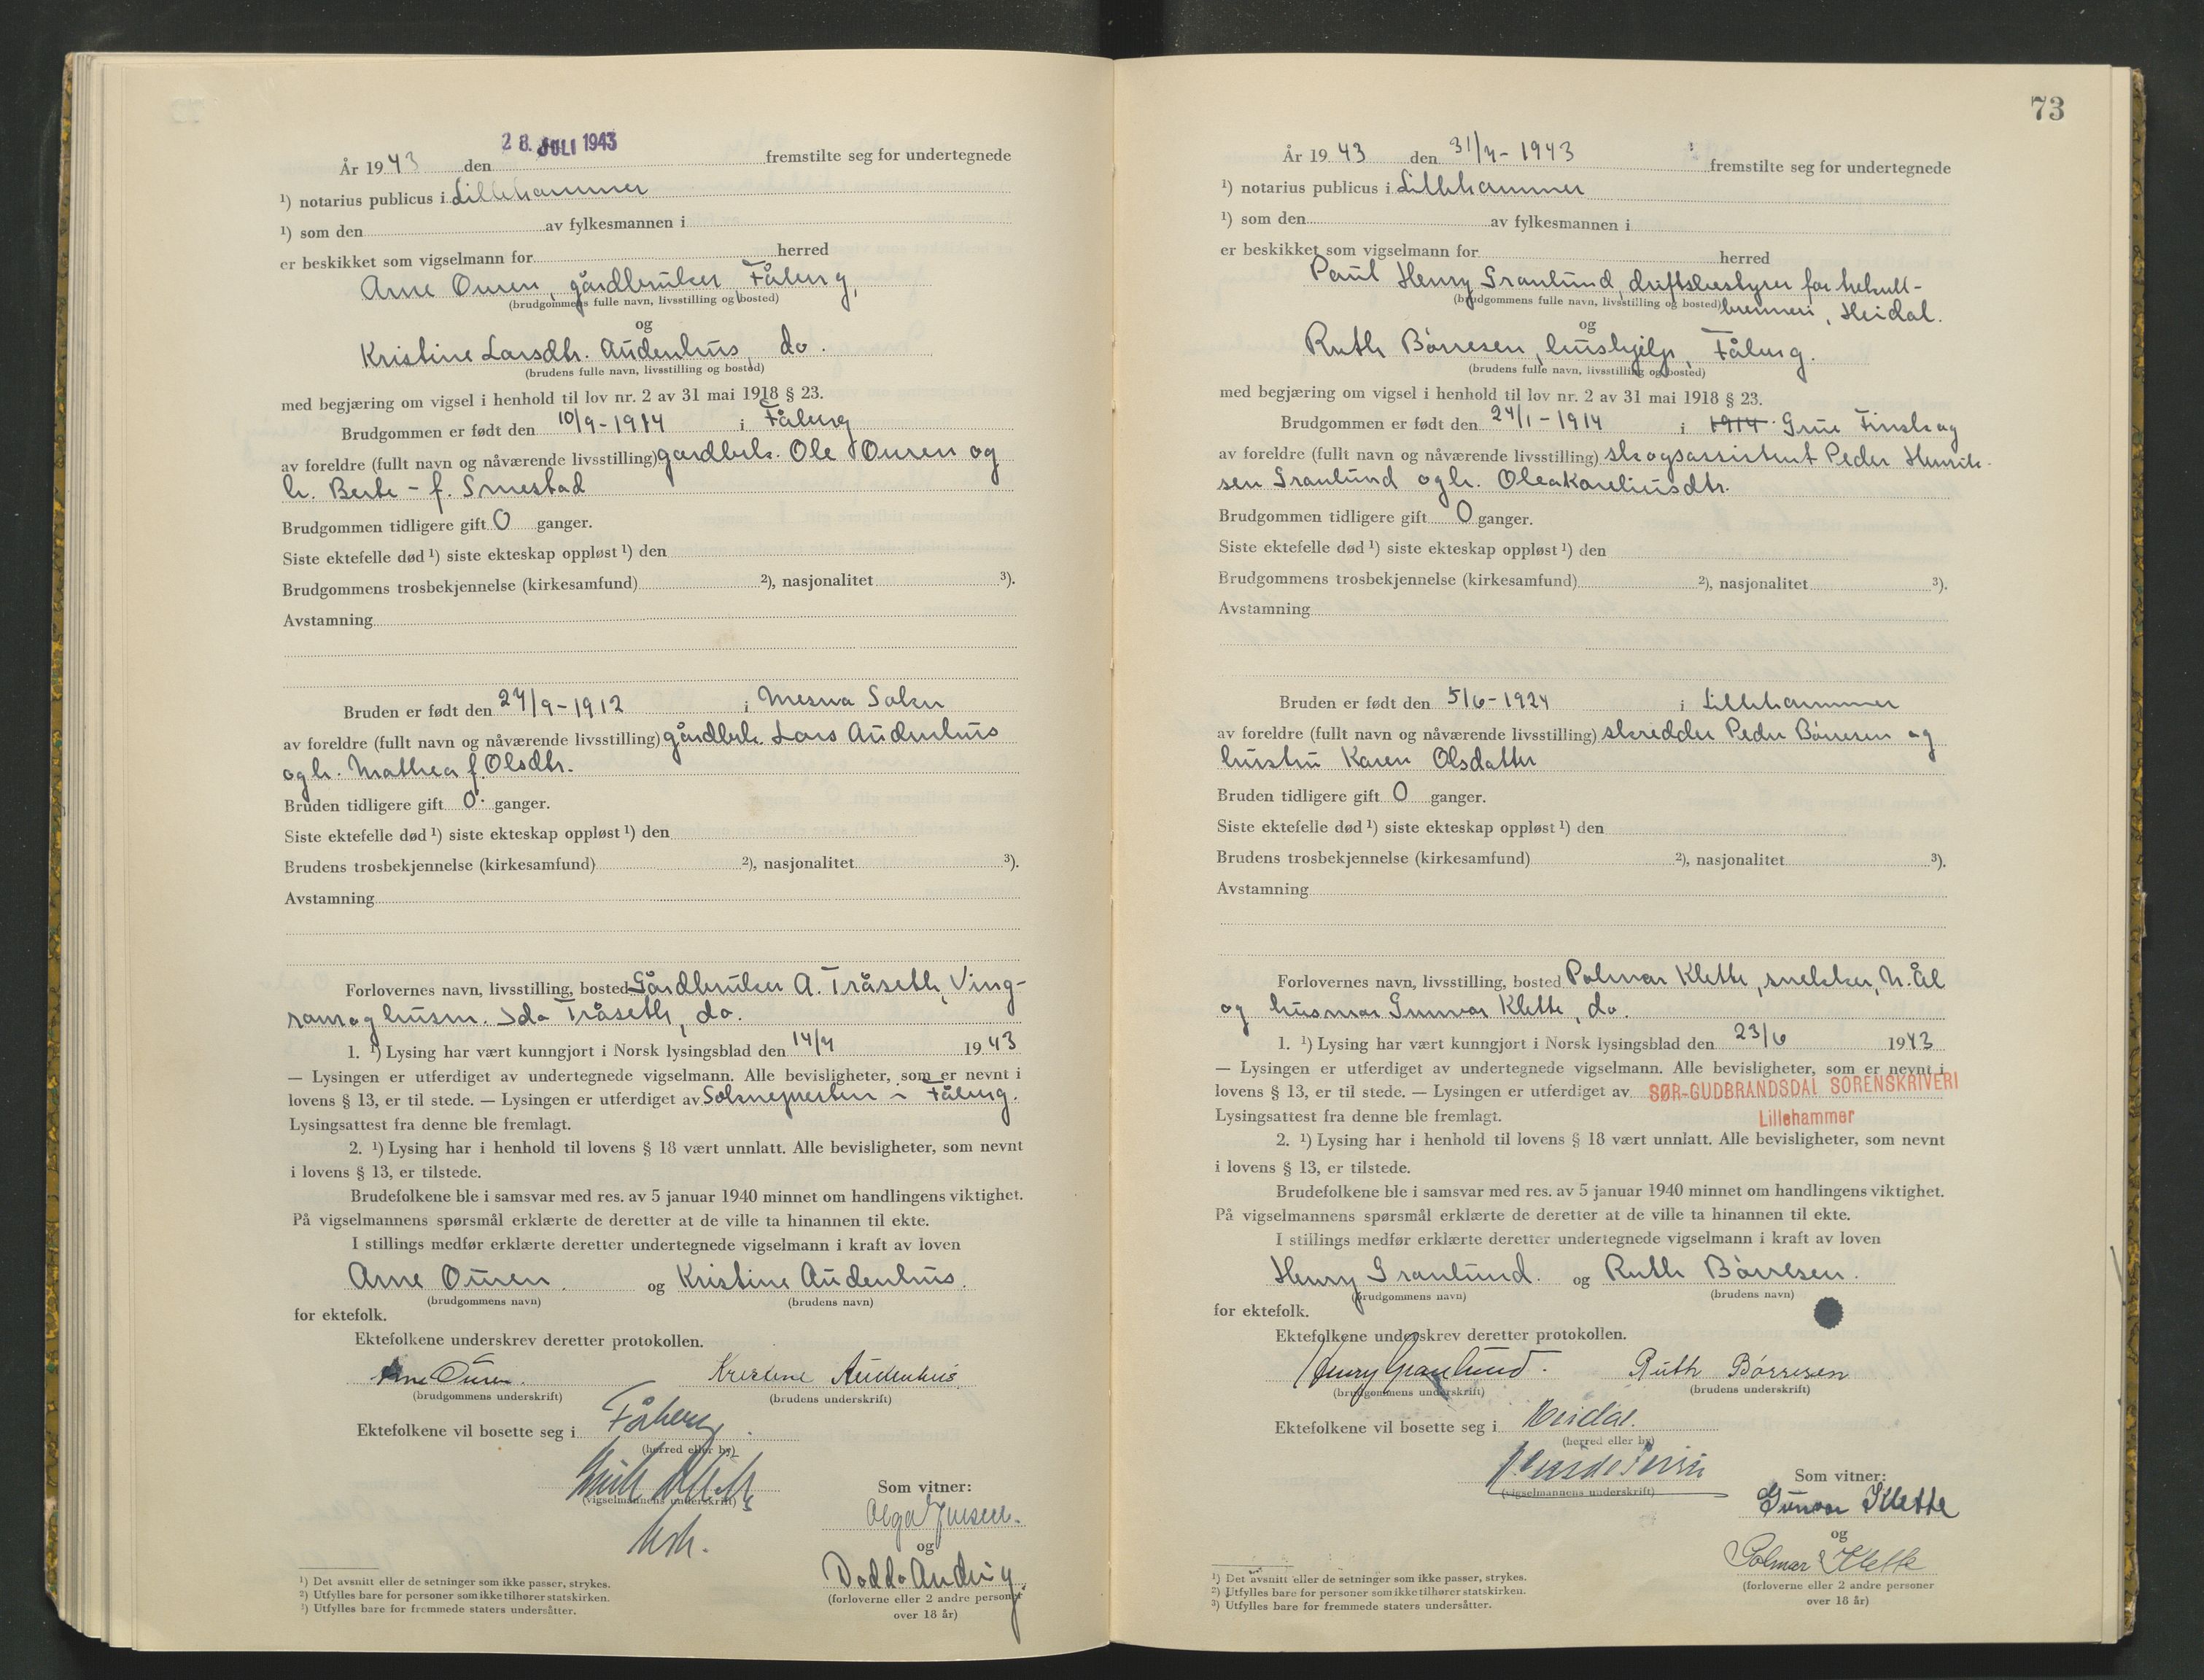 28. JULI 1943
År 1943 den fremstilte seg for undertegnede
¹) notarius publicus i Lillehammer
¹) som den av fylkesmannen i
er beskikket som vigselmann for herred
Arne Ouren, gårdbruker Fåberg,
(brudgommens fulle navn, livsstilling og bosted)
og
Kristine Larsdtr. Audenhus, do.
(brudens fulle navn, livsstilling og bosted)
med begjæring om vigsel i henhold til lov nr. 2 av 31 mai 1918 § 23.
Brudgommen er født den 10/9-1914 i Fåberg
av foreldre (fullt navn og nåværende livsstilling) gardbrk. Ole Ouren og
h. Berte - f. Smestad
Brudgommen tidligere gift 0 ganger.
Siste ektefelle død ¹) siste ekteskap oppløst ¹) den
Brudgommens trosbekjennelse (kirkesamfund) ²), nasjonalitet ³).
Avstamning
Bruden er født den 27/9-1912 i Mesna Salen
av foreldre (fullt navn og nåværende livsstilling) gårdbrk. Lars Audenhus
og h. Mathea f. Olsdtr.
Bruden tidligere gift 0. ganger.
Siste ektefelle død ¹) siste ekteskap oppløst ¹) den
Brudens trosbekjennelse (kirkesamfund) ²), nasjonalitet ³).
Avstamning
Forlovernes navn, livsstilling, bosted Gårdbruker A. Tråseth, Ving-
rom og husm. Ida Tråseth, do.
1. ¹) Lysing har vært kunngjort i Norsk lysingsblad den 14/7 1943
— Lysingen er utferdiget av undertegnede vigselmann. Alle bevisligheter, som er nevnt i
lovens § 13, er til stede. — Lysingen er utferdiget av Soknepresten i Fåberg.
Lysingsattest fra denne ble fremlagt.
2. ¹) Lysing har i henhold til lovens § 18 vært unnlatt. Alle bevisligheter, som nevnt
i lovens § 13, er tilstede.
Brudefolkene ble i samsvar med res. av 5 januar 1940 minnet om handlingens viktighet.
På vigselmannens spørsmål erklærte de deretter at de ville ta hinannen til ekte.
I stillings medfør erklærte deretter undertegnede vigselmann i kraft av loven
Arne Ouren. og Kristine Audenhus.
(brudgommens navn) (brudens navn)
for ektefolk.
Ektefolkene underskrev deretter protokollen.
Arne Ouren. Kristine Audenhus.
(brudgommens underskrift) (brudens underskrift)
Ektefolkene vil bosette seg i Fåberg.
(herred eller by)
(vigselmannens underskrift)
Som vitner:
Olga Jensen.
og
Dodda
(forloverne eller 2 andre personer
over 18 år)
¹) Det avsnitt eller de setninger som ikke passer, strykes.
²) Utfylles bare for personer som ikke tilhører statskirken.
³) Utfylles bare for fremmede staters undersåtter.
73
År 1943 den 31/7-1943 fremstilte seg for undertegnede
¹) notarius publicus i Lillehammer
¹) som den av fylkesmannen i
er beskikket som vigselmann for herred
Paul Henry Granlund, driftsbestyrer for trekull-
(brudgommens fulle navn, livsstilling og bosted) brenneri, Heidal.
og
Ruth Børresen, hushjelp, Fåberg.
(brudens fulle navn, livsstilling og bosted)
med begjæring om vigsel i henhold til lov nr. 2 av 31 mai 1918 § 23.
Brudgommen er født den 24/1-1914 i 1914 Grue Finskog
av foreldre (fullt navn og nåværende livsstilling) skogsassistent Peder Henrik-
sen Granlund og h. Olea Kareliusdtr.
Brudgommen tidligere gift 0 ganger.
Siste ektefelle død ¹) siste ekteskap oppløst ¹) den
Brudgommens trosbekjennelse (kirkesamfund) ²), nasjonalitet ³).
Avstamning
Bruden er født den 5/6-1924 i Lillehammer
av foreldre (fullt navn og nåværende livsstilling) skredder Peder Børresen og
hustru Karen Olsdatter
Bruden tidligere gift 0 ganger.
Siste ektefelle død ¹) siste ekteskap oppløst ¹) den
Brudens trosbekjennelse (kirkesamfund) ²), nasjonalitet ³).
Avstamning
Forlovernes navn, livsstilling, bosted Polmar Klette, snekker, N. Ål
og husmor Gunvor Klette, do.
1. ¹) Lysing har vært kunngjort i Norsk lysingsblad den 23/6 1943
— Lysingen er utferdiget av undertegnede vigselmann. Alle bevisligheter, som er nevnt i
lovens § 13, er til stede. — Lysingen er utferdiget av SØR-GUDBRANDSDAL SORENSKRIVERI
Lysingsattest fra denne ble fremlagt. Lillehammer
2. ¹) Lysing har i henhold til lovens § 18 vært unnlatt. Alle bevisligheter, som nevnt
i lovens § 13, er tilstede.
Brudefolkene ble i samsvar med res. av 5 januar 1940 minnet om handlingens viktighet.
På vigselmannens spørsmål erklærte de deretter at de ville ta hinannen til ekte.
I stillings medfør erklærte deretter undertegnede vigselmann i kraft av loven
Henry Granlund. og Ruth Børresen.
(brudgommens navn) (brudens navn)
for ektefolk.
Ektefolkene underskrev deretter protokollen.
Henry Granlund. Ruth Børresen
(brudgommens underskrift) (brudens underskrift)
Ektefolkene vil bosette seg i Heidal.
(herred eller by)
(vigselmannens underskrift)
Som vitner:
Gunvor Klette
og
Polmar Klette
(forloverne eller 2 andre personer
over 18 år)
¹) Det avsnitt eller de setninger som ikke passer, strykes.
²) Utfylles bare for personer som ikke tilhører statskirken.
³) Utfylles bare for fremmede staters undersåtter.